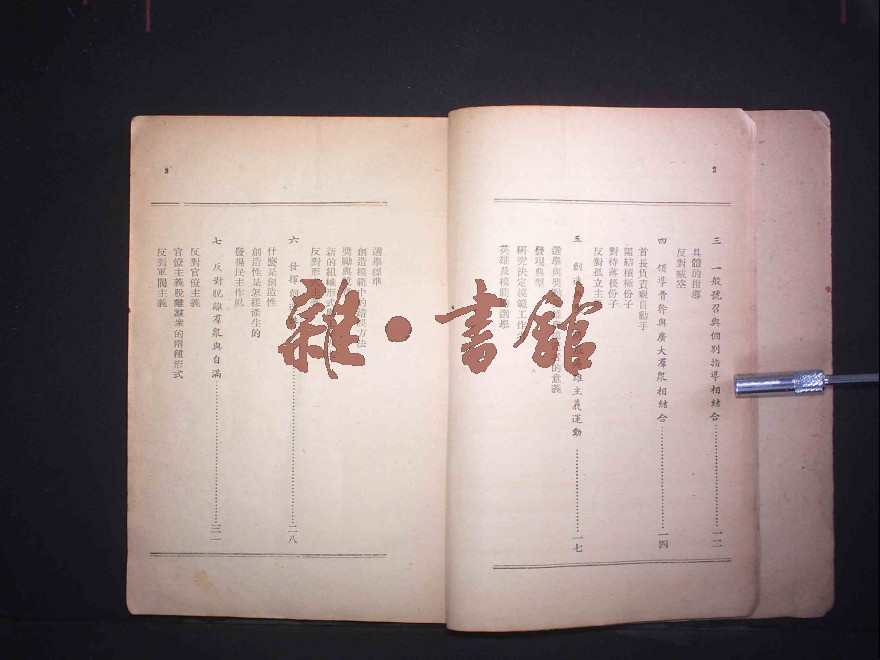 2
三 一般號召與個別指導相結合 一二
具體的指導
反對瞎幸
四 領導骨幹與廣大羣衆相結合 一四
首長負責親自動手
團結積極份子
對待落後份子
反對孤立主
五 創 雄主義運動 一七
選舉與奬 的意義
發現典型
研究決定模範工作
英雄及模範的選舉
3
選舉標準
創造模範中的錯誤方法
奬勵與
新的組織形式
反對形式主
六 發揮 二八
什麼是創造性
創造性是怎樣產生的
發揚民主作風
七 反對脫離羣衆與自滿 三一
反對官僚主義
官僚主義脫離羣衆的兩種形式
反對軍閥主義
雜·書館